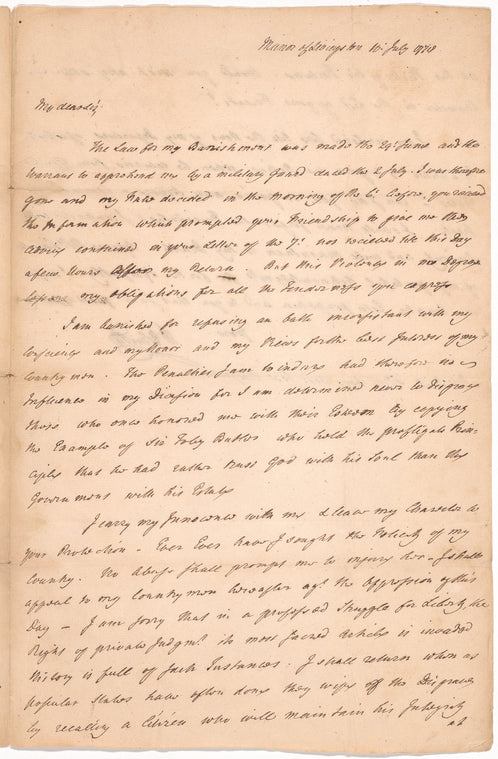 Manor of Livingston 10: July 1778
My dear Sir,
The Law for my Banishment was made the 29: June and the
Warrant to apprehend me by a military Guard dated the 2 July. I was therefore
gone and my Fate decided in the Morning of the 6: before, you received
the Information which prompted your Friendship to give me the
Advice contained in your Letter of the 7: nor recieved till this Day
a few Hours after my Return. But this Violence in no Degree
lessens my obligations for all the Tenderness you express
I am banished for refusing an Oath inconsistant with my
Conscience and my Honor and my Views for the best Interest of my
Country men. The Penalties I am to indure had therefore no
Influence in my Decision for I am determined never to disgrace
those who once honored me with their Esteem by copying
the Example of Sir Toby Butler who held the profligate Prin-
ciples that he had rather trust God with his Soul than the
Government with his Estate
I carry my Innocence with me & leave my Character to
your Protection - Ever Ever have I sought the Felicity of my
Country. No abuse shall prompt me to injure her - I shall
appeal to my Country men hereafter agt the Oppression of this
Day - I am sorry that in a professed Struggle for Liberty, the
Right of private Judgmt its most sacred Article is invaded
History is full of such Instances. I shall return when as
popular States have often done they wipe off the Disgrace
by recalling a Citizen who will maintain his Integrity
at